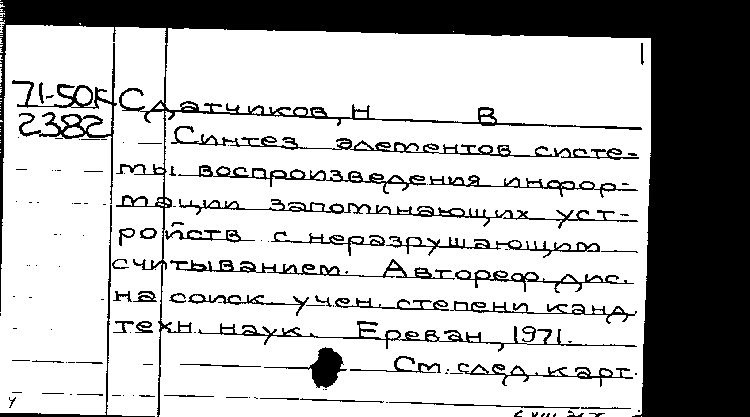 71-50к Сдатчиков, Н В
2382
Синтез элементов систе-
мы воспроизведения инфор-
мации запоминающих уст-
ройств с неразрушающим
считыванием. Автореф. дис.
на соиск учен. степени канд.
техн. наук. Ереван, 1971.
См. след. карт.